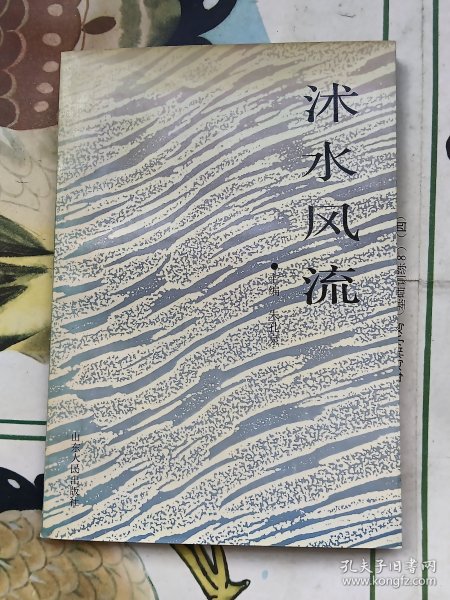 沭水风流
主编 朱孔宽
山东人民出版社
孔夫子旧书网
www.kongfz.com